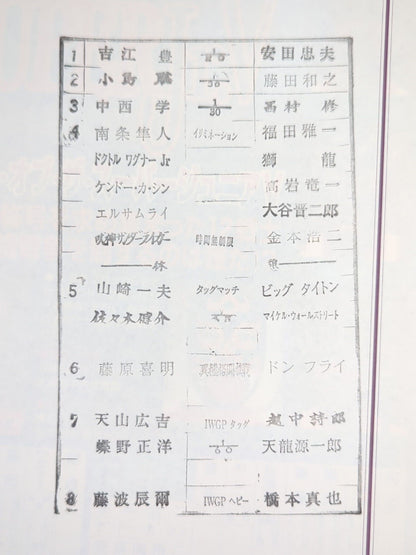 1 吉江 豊 1/20 安田忠夫
2 小島 聡 1/30 藤田和之
3 中西 学 1/30 西村 修
4 南条隼人 イリミネーション 福田雅一
ドクトル ワグナー Jr 獅 龍
ケンドー・カ・シン 高岩竜一
エルサムライ 大谷晋二郎
獣神サンダーライガー 時間無制限 金本浩二
休 憩
5 山崎一夫 タッグマッチ ビッグ タイトン
佐々木健介 マイケル・ウォールストリート
6 藤原喜明 ドン フライ
7 天山広吉 IWGP タッグ 越中詩郎
蝶野正洋 1/60 天龍源一郎
8 藤波辰爾 IWGP ヘビー 橋本真也